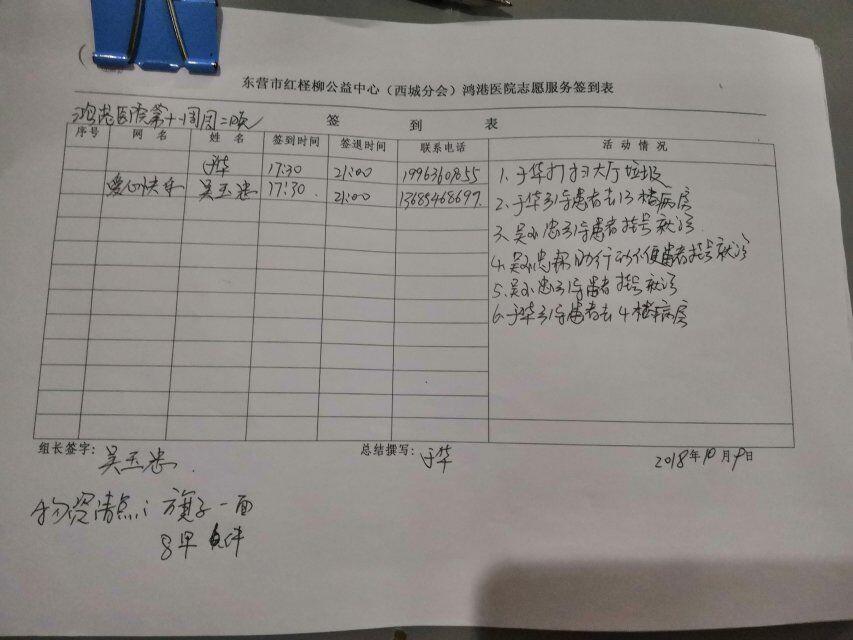 东营市红柽柳公益中心（西城分会）鸿港医院志愿服务签到表
鸿港医院第十一周周二晚 签 到 表
序号 网 名 姓 名 签到时间 签退时间 联系电话 活 动 情 况
于华 17:30 21:00 1996360855
爱心快车 吴玉忠 17:30 21:00 13685468697
1.于华打扫大厅垃圾
2.于华引导患者去13楼病房
3.吴玉忠引导患者挂号就诊
4.吴玉忠帮助行动不便患者挂号就诊
5.吴玉忠引导患者挂号就诊
6.于华引导患者去4楼病房
组长签字：吴玉忠 总结撰写：于华 2018年10月9日
物资清点：旗子一面
8早